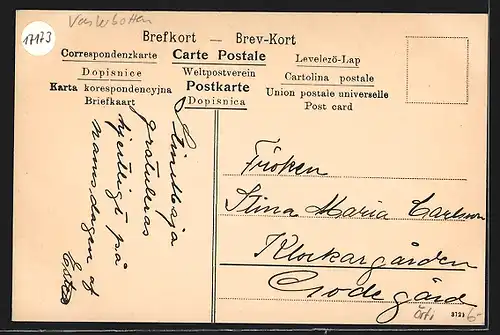 Vesterbotten
17173
Brefkort — Brev-Kort
Correspondenzkarte Carte Postale Levelező-Lap
Dopisnice Weltpostverein Cartolina postale
Karta korespondencyjna Postkarte Union postale universelle
Briefkaart Dopisnica Post card
Stinimaja
gratuleras
hjertligt på
namnsdagen af
Ester
Fröken
Stina Maria Carlson
Klockargården
Godegård
6-